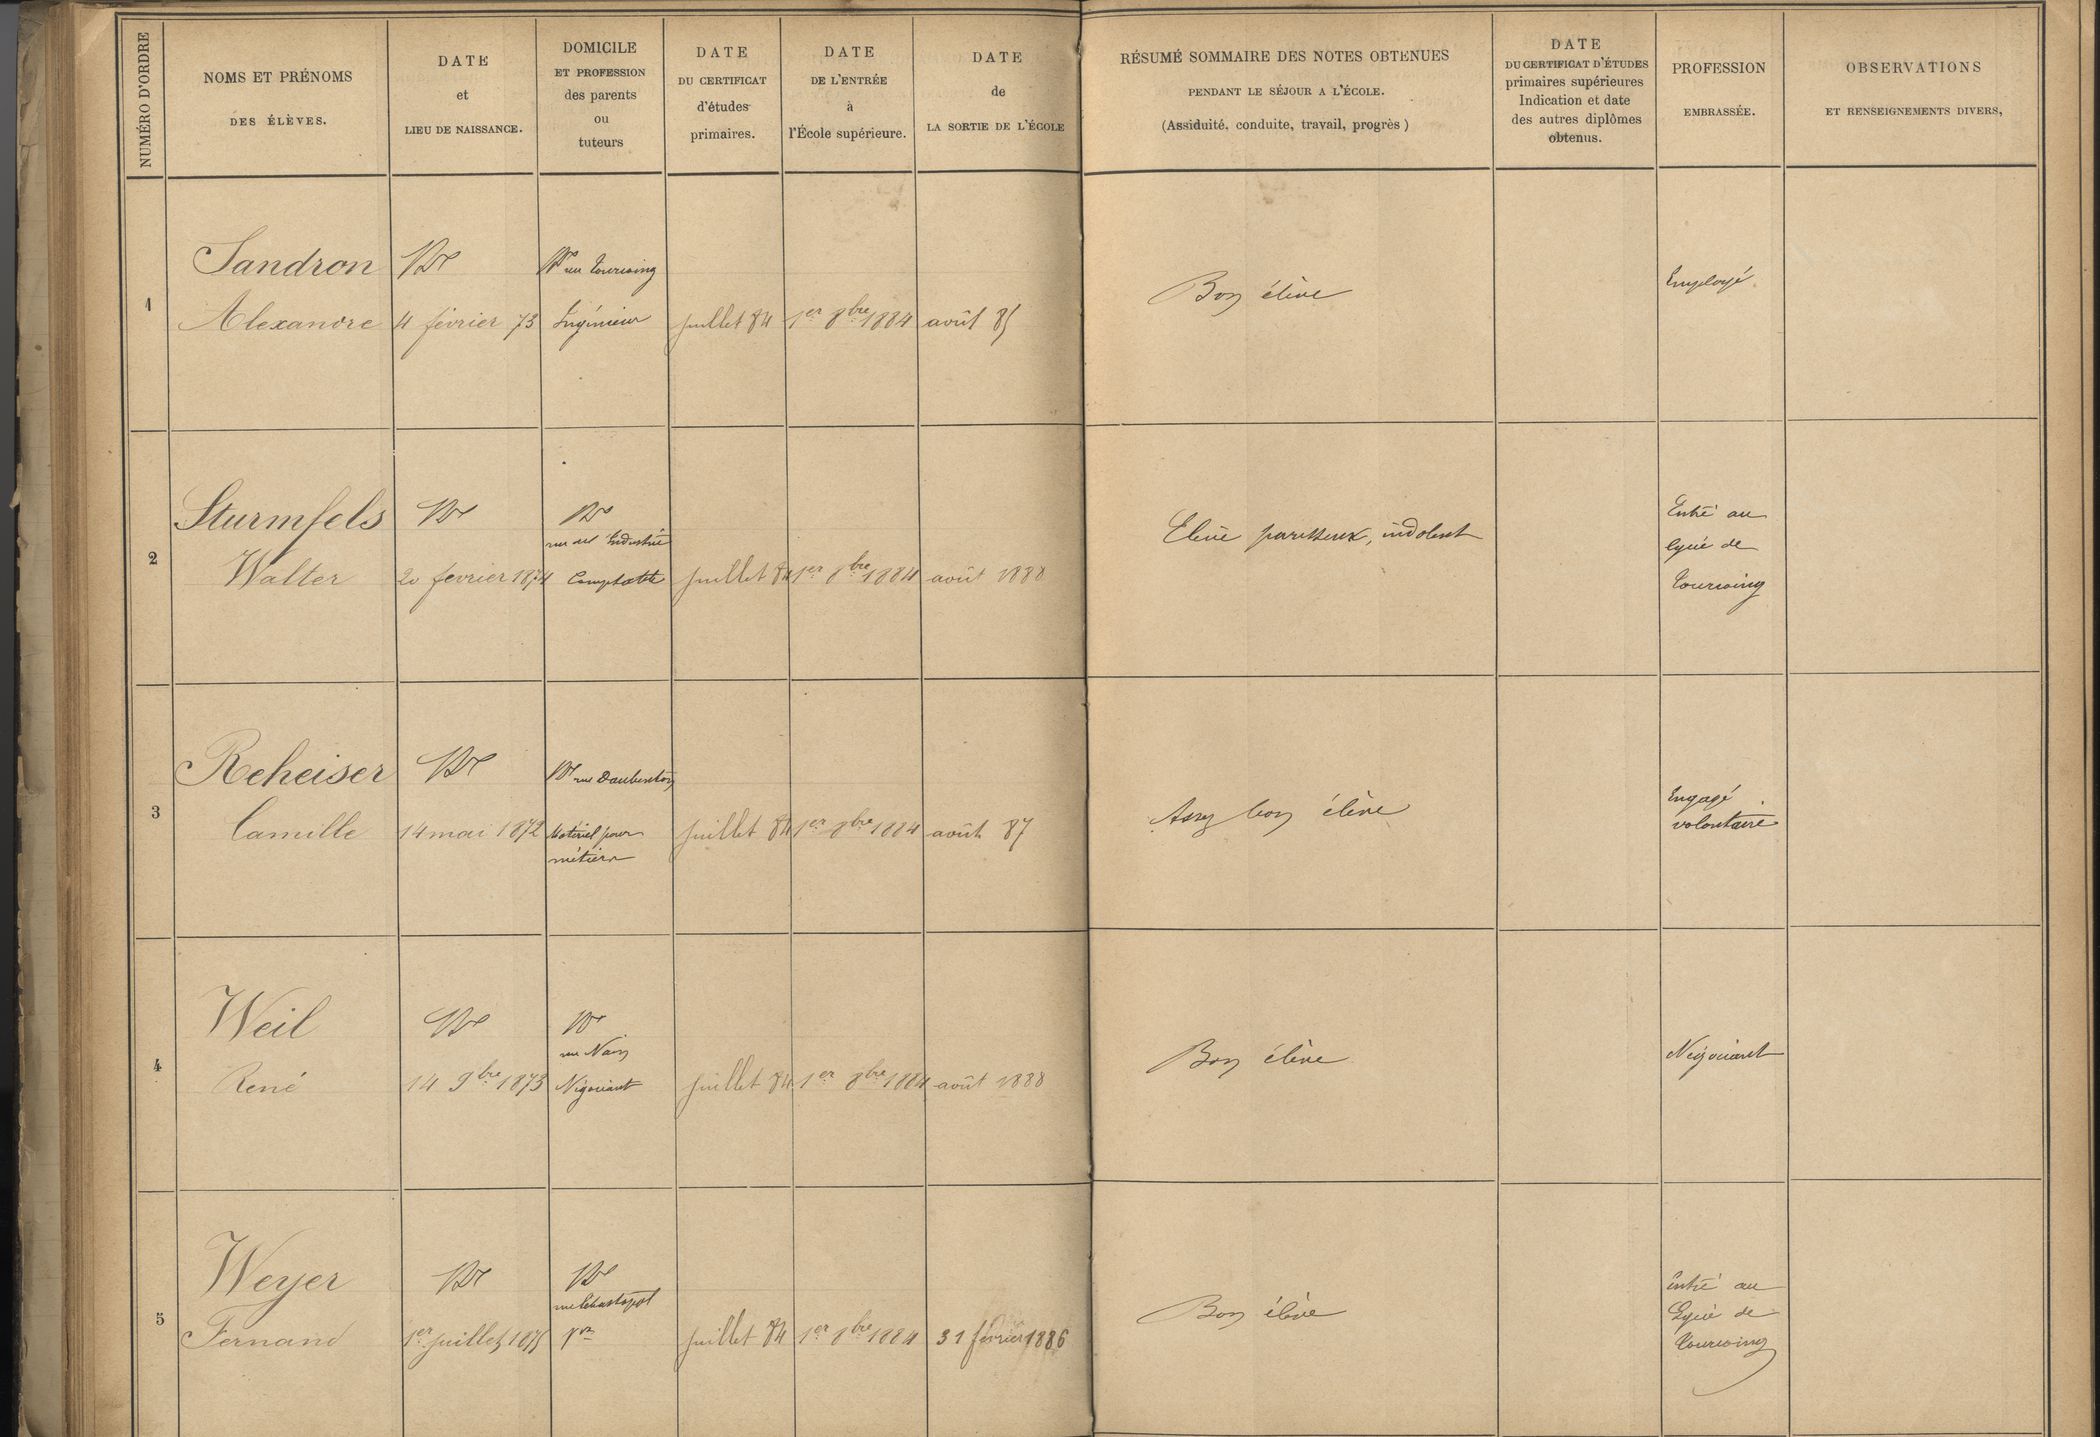 NUMÉRO D'ORDRE
NOMS ET PRÉNOMS
DES ÉLÈVES.
DATE
et
LIEU DE NAISSANCE.
DOMICILE
ET PROFESSION
des parents
ou
tuteurs
DATE
DU CERTIFICAT
d'études
primaires.
DATE
DE L'ENTRÉE
à
l'École supérieure.
DATE
de
LA SORTIE DE L'ÉCOLE
RÉSUMÉ SOMMAIRE DES NOTES OBTENUES
PENDANT LE SÉJOUR A L'ÉCOLE.
(Assiduité, conduite, travail, progrès)
DATE
DU CERTIFICAT D'ÉTUDES
primaires supérieures
Indication et date
des autres diplômes
obtenus.
PROFESSION
EMBRASSÉE.
OBSERVATIONS
ET RENSEIGNEMENTS DIVERS,
1
Sandron
Alexandre
Bx
4 février 73
Bx rue Tourcoing
Ingénieur
juillet 84
1er 8bre 1884
août 85
Bon élève
Employé
2
Sturmfels
Walter
Bx
20 fevrier 1874
Bx
rue de l'Industrie
Comptable
juillet 84
1er 8bre 1884
août 1888
Elève paresseux, indolent
Entré au
lycée de
Tourcoing
3
Reheiser
Camille
Bx
14 mai 1872
Bx rue Daubenton
Matériel pour
métiers
juillet 84
1er 8bre 1884
août 87
Assez bon élève
Engagé
volontaire
4
Weil
René
Bx
14 9bre 1873
Bx
rue Nain
Négociant
juillet 84
1er 8bre 1884
août 1888
Bon élève
Négociant
5
Weyer
Fernand
Bx
1er juillet 1875
Bx
rue Sébastopol
juillet 84
1er 8bre 1884
31 février 1886
Bon élève
Entré au
Lycée de
Tourcoing